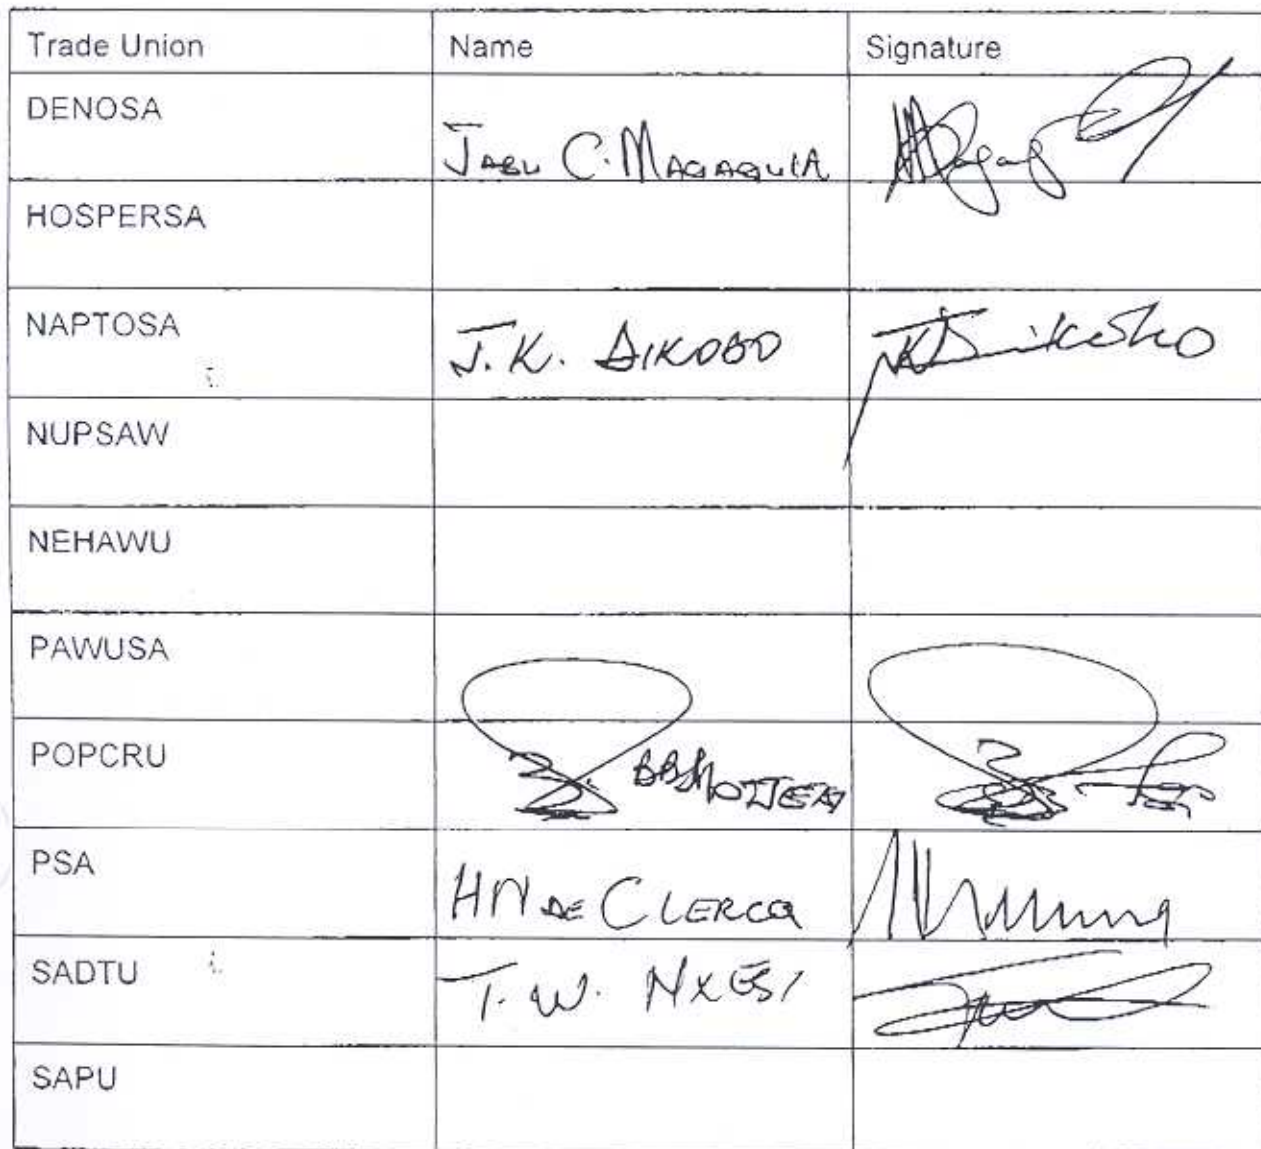 Trade Union Name Signature
DENOSA
JABU C. MAQAQULA
HOSPERSA
NAPTOSA
J.K. DIKOBO
NUPSAW
NEHAWU
PAWUSA
POPCRU
PSA
HM DE CLERCQ
SADTU
T. W. NXESI
SAPU